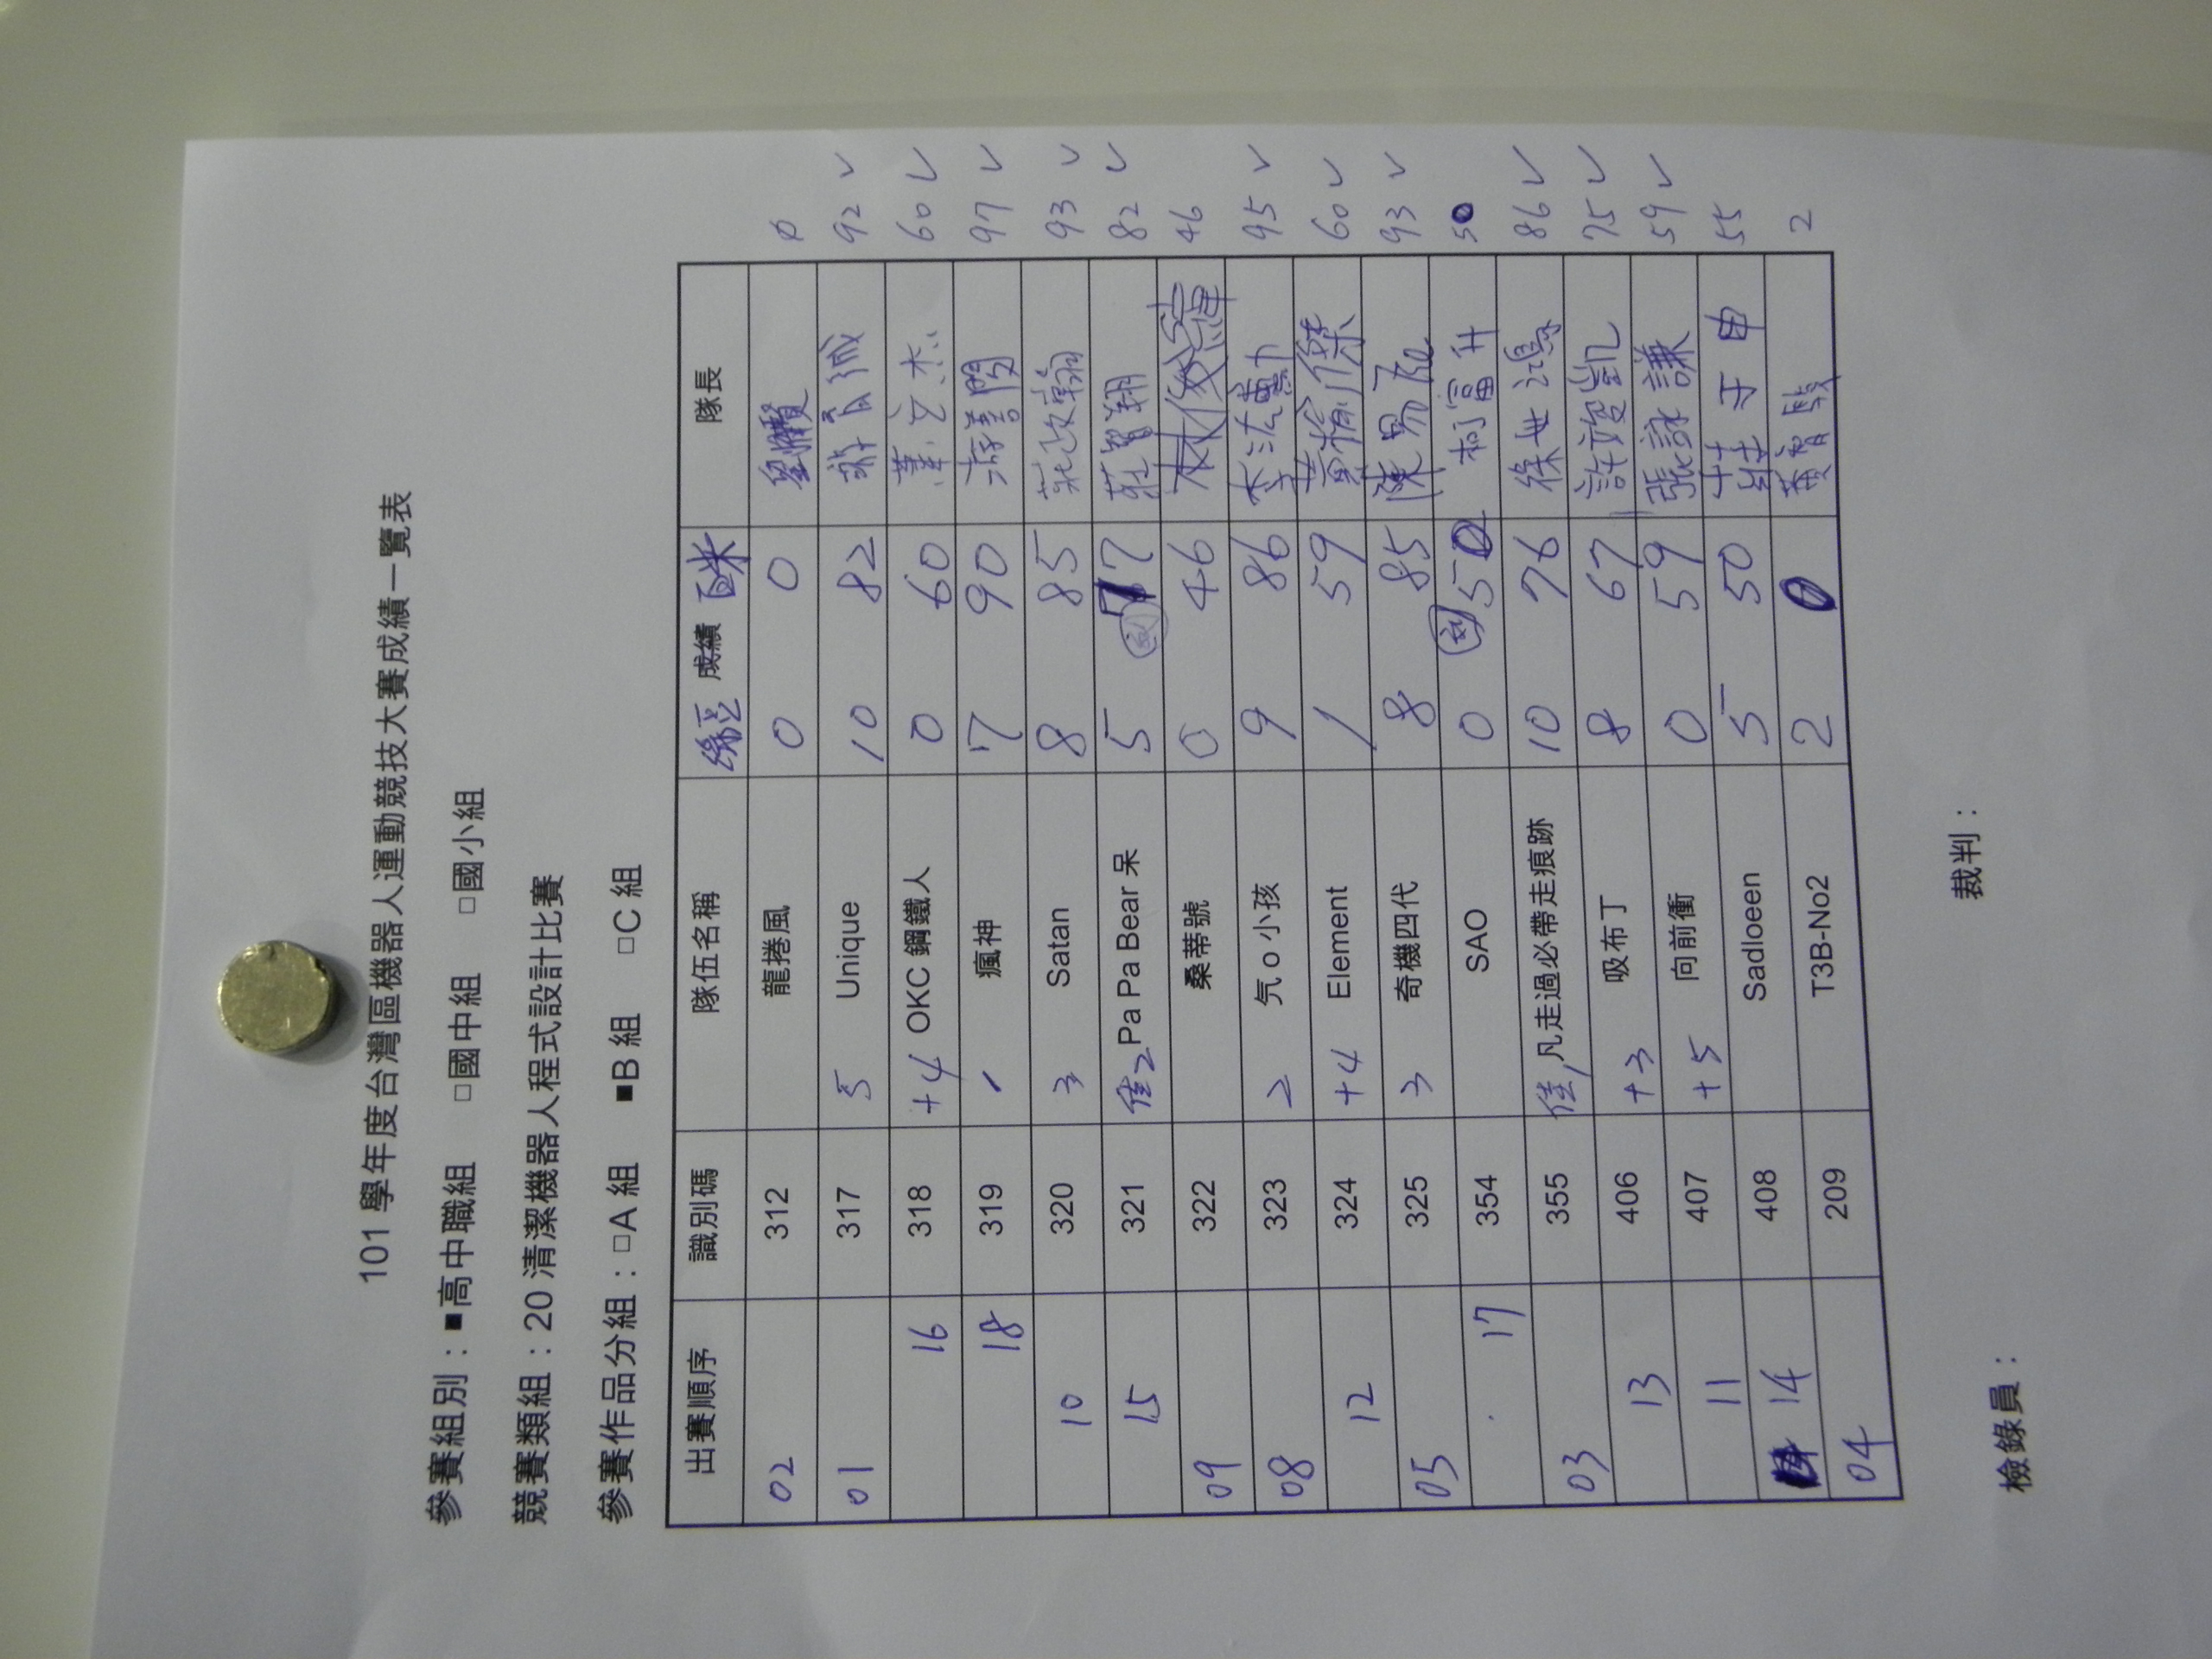 101 學年度台灣區機器人運動競技大賽成績一覽表
參賽組別：■高中職組 □國中組 □國小組
競賽類組：20 清潔機器人程式設計比賽
參賽作品分組：□A 組 ■B 組 □C 組
出賽順序 識別碼 隊伍名稱 綠豆 成績 白米 隊長
02 312 龍捲風 0 0 0
01 317 5 Unique 10 82 92 ✓
16 318 +4 OKC 鋼鐵人 0 60 60 ✓
18 319 1 瘋神 7 90 97 ✓
10 320 3 Satan 8 85 莊政翰 93 ✓
15 321 佳2 Pa Pa Bear 呆 5 77 莊智翔 82 ✓
09 322 桑蒂號 0 46 林俊緯 46
08 323 2 氖 o 小孩 9 86 95 ✓
12 324 +4 Element 1 59 黃榆傑 60 ✓
05 325 3 奇機四代 8 85 陳易 93 ✓
17 354 SAO 0 50 柯富升 50
03 355 佳1 凡走過必帶走痕跡 10 76 徐世鴻 86 ✓
13 406 +3 吸布丁 8 67 許竣凱 75 ✓
11 407 +5 向前衝 0 59 張詠謙 59 ✓
14 408 Sadloeen 5 50 55
04 209 T3B-No2 2 0 2
檢錄員： 裁判：